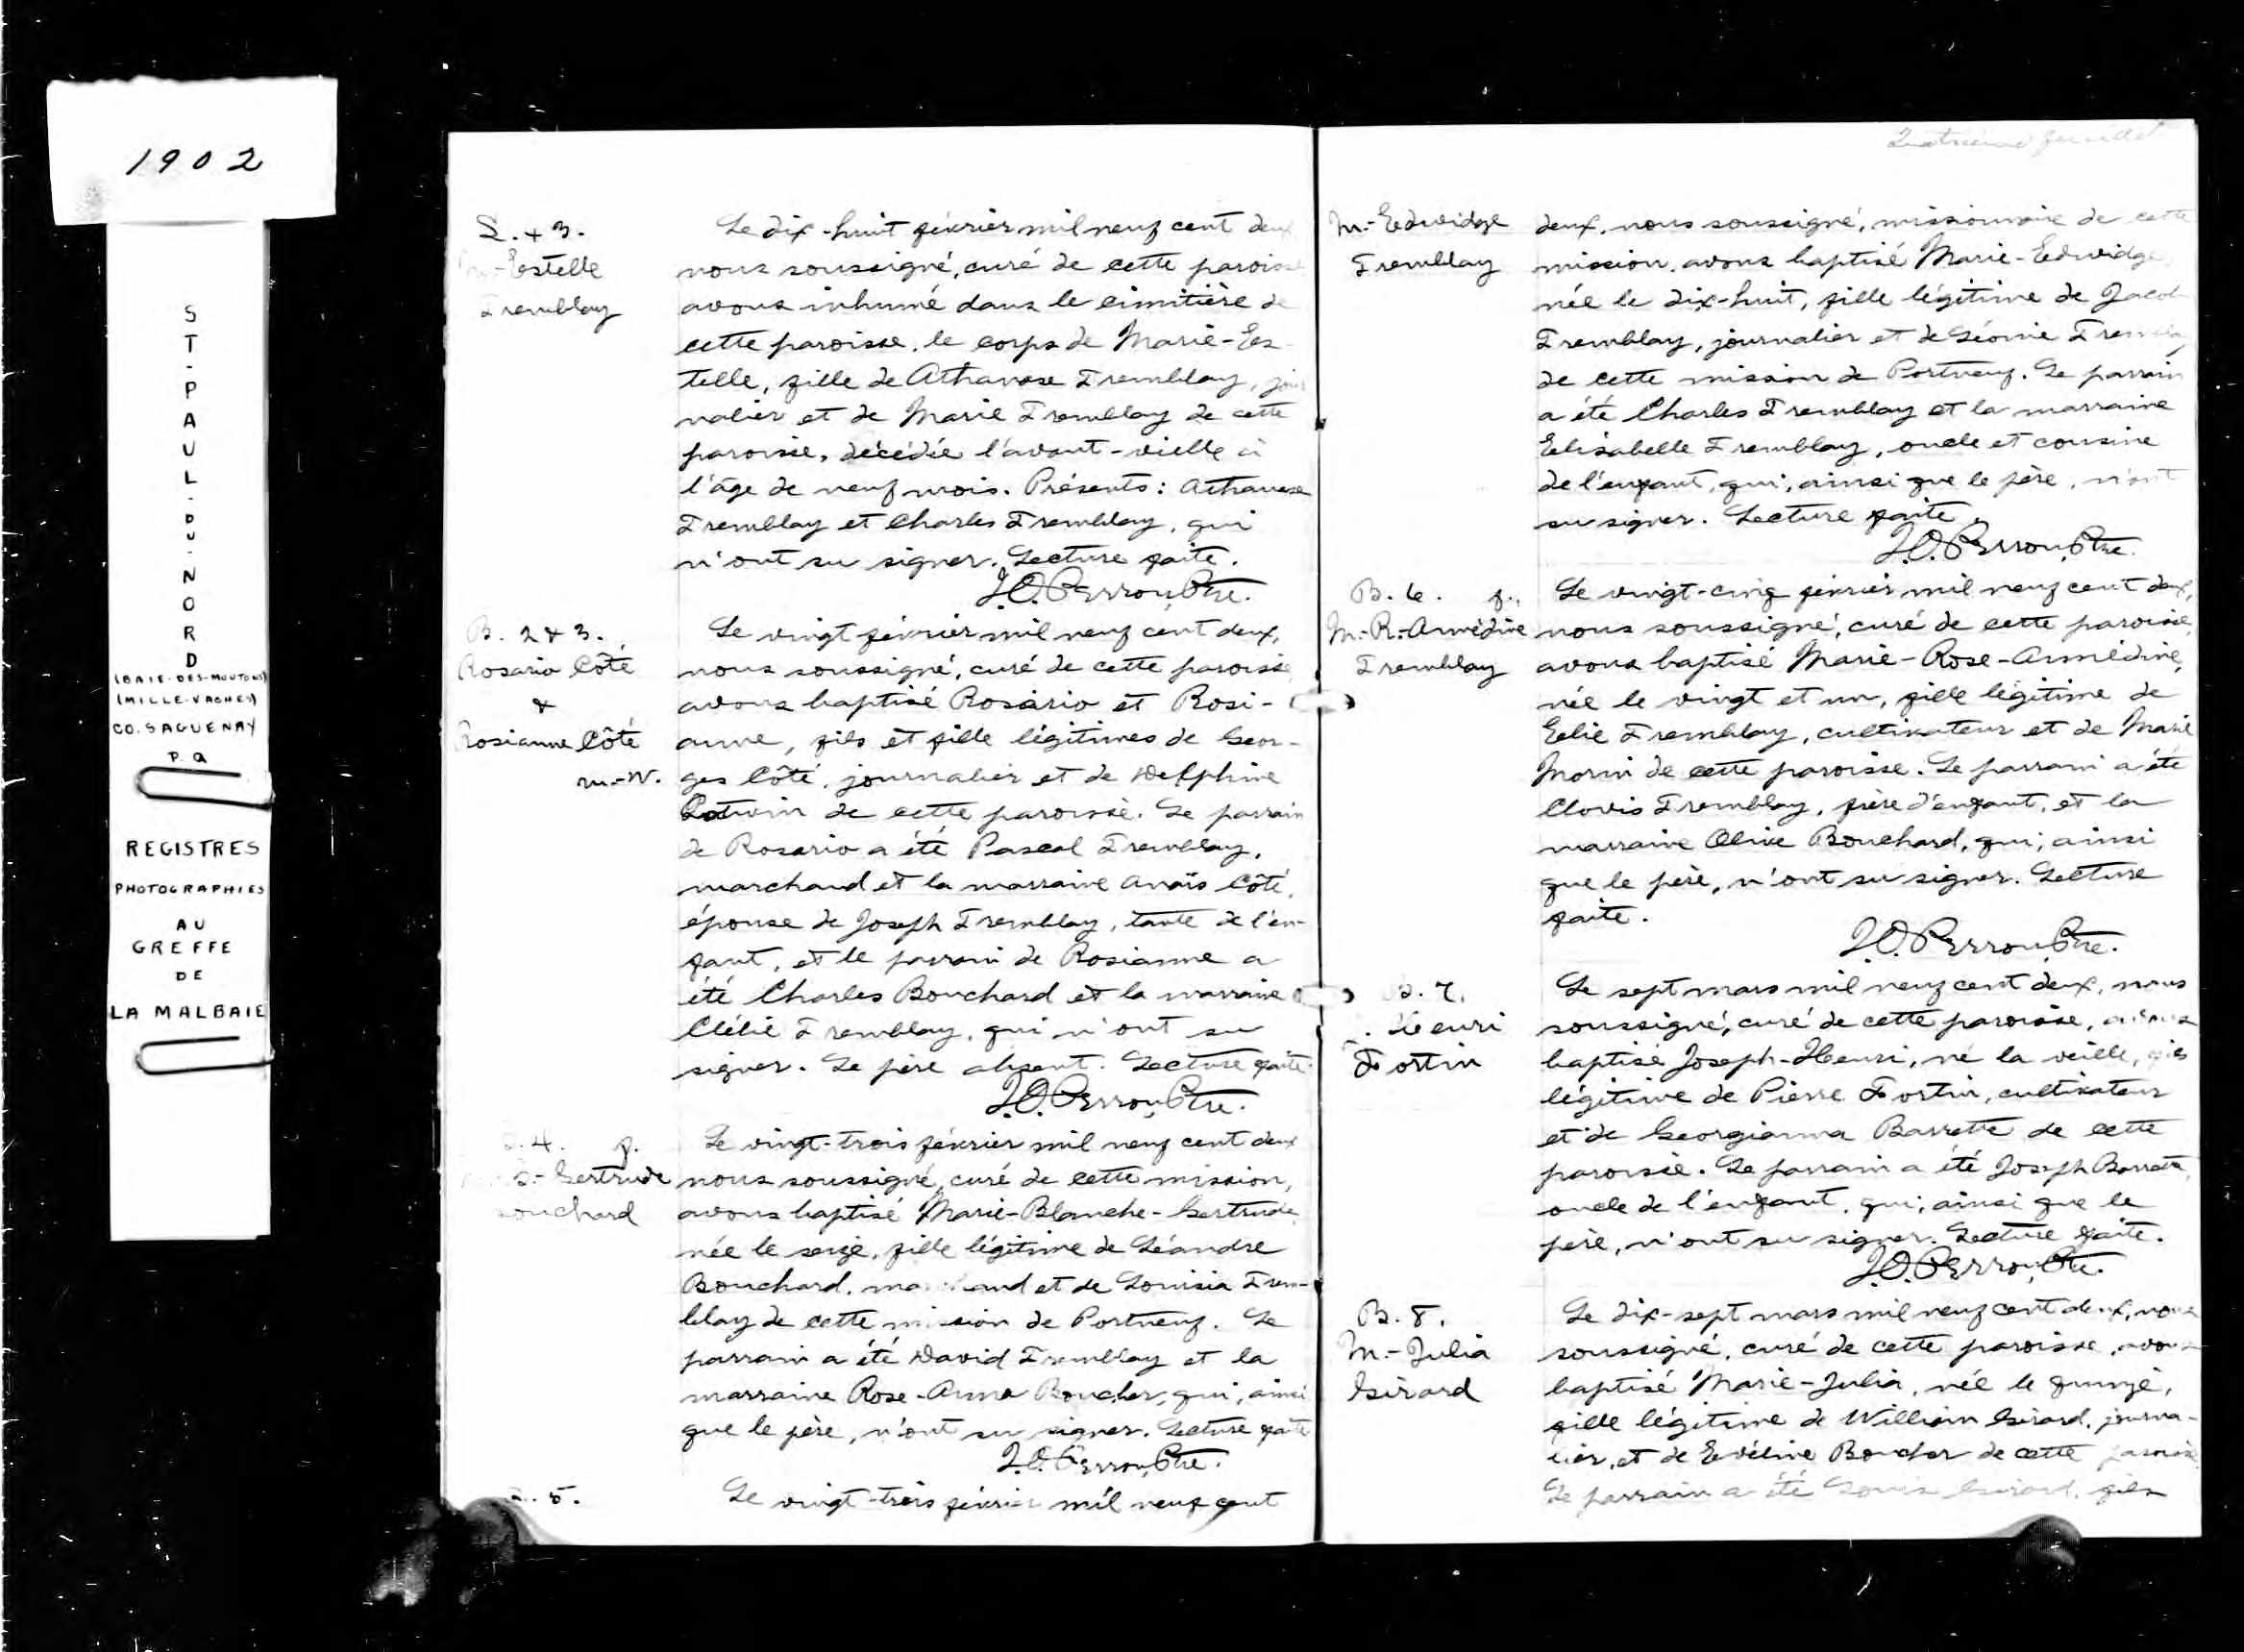 1902
ST-PAUL-DU-NORD
(BAIE-DES-MOUTONS)
(MILLE-VACHES)
CO. SAGUENAY
P. Q
REGISTRES
PHOTOGRAPHIÉS
AU
GREFFE
DE
LA MALBAIE
S. + 3.
Estelle
Tremblay
Le dix-huit février mil neuf cent deux
nous soussigné, curé de cette paroisse
avons inhumé dans le cimitière de
cette paroisse, le corps de Marie-Es-
telle, fille de Athanase Tremblay, jour
nalier et de Marie Tremblay de cette
paroisse, décédée l'avant-vielle à
l'âge de neuf mois. Présents: Athanase
Tremblay et Charles Tremblay, qui
n'ont su signer. Lecture faite.
J.O. Perron, Ptre.
B. 2 & 3.
Rosario Côté
&
Rosianne Côté
m.-N.
Le vingt février mil neuf cent deux,
nous soussigné, curé de cette paroisse
avons baptisé Rosario et Rosi-
anne, fils et fille légitimes de Geor-
ges Côté, journalier et de Delphine
de cette paroisse. Le parrain
de Rosario a été Pascal Tremblay,
marchand et la marraine Anaïs Côté,
épouse de Joseph Tremblay, tante de l'en-
fant, et le parrain de Rosianne a
été Charles Bouchard et la marraine
Clélie Tremblay, qui n'ont su
signer. Le père absent. Lecture faite.
J.O. Perron, Ptre.
4. f.
Gertrude
ouchard
Le vingt-trois février mil neuf cent deux
nous soussigné, curé de cette mission,
avons baptisé Marie-Blanche-Gertrude,
née le seize, fille légitime de Léandre
Bouchard, ma and et de Louisia Trem-
blay de cette mission de Portneuf. Le
parrain a été David Tremblay et la
marraine Rose-Anna Boucher, qui, ainsi
que le père, n'ont su signer. Lecture faite
J.O. Perron, Ptre.
5.
Le vingt-trois février mil neuf cent
M.-Edwidge
Tremblay
deux, nous soussigné, missionnaire de cette
mission, avons baptisé Marie-Edwidge,
née le dix-huit, fille légitime de Jacob
Tremblay, journalier et de Léonie Tremblay
de cette mission de Portneuf. Le parrain
a été Charles Tremblay et la marraine
Elisabelle Tremblay, oncle et cousine
de l'enfant, qui, ainsi que le père, n'ont
su signer. Lecture faite.
J.O. Perron, Ptre.
B. 6. f.
M.-R.-Armédine
Tremblay
Le vingt-cinq février mil neuf cent deux,
nous soussigné, curé de cette paroisse,
avons baptisé Marie-Rose-Armédine,
née le vingt et un, fille légitime de
Elie Tremblay, cultivateur et de Marie
Morin de cette paroisse. Le parrain a été
Clovis Tremblay, frère d'enfant, et la
marraine Olive Bouchard, qui, ainsi
que le père, n'ont su signer. Lecture
faite.
J.O. Perron, Ptre.
B. 7.
Henri
Fortin
Le sept mars mil neuf cent deux, nous
soussigné, curé de cette paroisse, avons
baptisé Joseph-Henri, né la veille, fils
légitime de Pierre Fortin, cultivateur
et de Georgianna Barrette de cette
paroisse. Le parrain a été Joseph Barrette,
oncle de l'enfant, qui, ainsi que le
père, n'ont su signer. Lecture faite.
J.O. Perron, Ptre.
B. 8.
M.-Julia
Girard
Le dix-sept mars mil neuf cent deux, nous
soussigné, curé de cette paroisse, avons
baptisé Marie-Julia, née le quinze,
fille légitime de William Girard, journa-
lier, et de Evéline Boucher de cette paroisse
Le parrain a été Louis Girard, fils